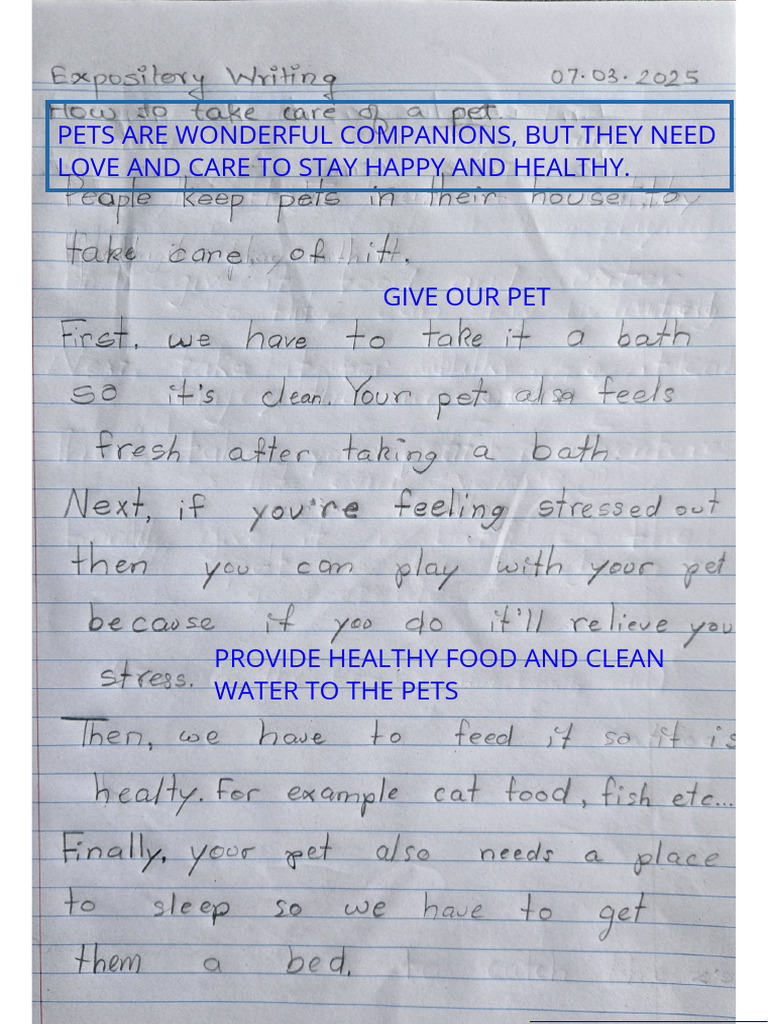 Expository Writing 07.03.2025
How to take care of a pet.
PETS ARE WONDERFUL COMPANIONS, BUT THEY NEED
LOVE AND CARE TO STAY HAPPY AND HEALTHY.
People keep pets in their house to
take care of it.
GIVE OUR PET
First, we have to take it a bath
so it's clean. Your pet also feels
fresh after taking a bath
Next, if you're feeling stressed out
then you can play with your pet
because if you do it'll relieve you
stress.
PROVIDE HEALTHY FOOD AND CLEAN
WATER TO THE PETS
Then, we have to feed it so it is
healty. For example cat food, fish etc...
Finally, your pet also needs a place
to sleep so we have to get
them a bed.